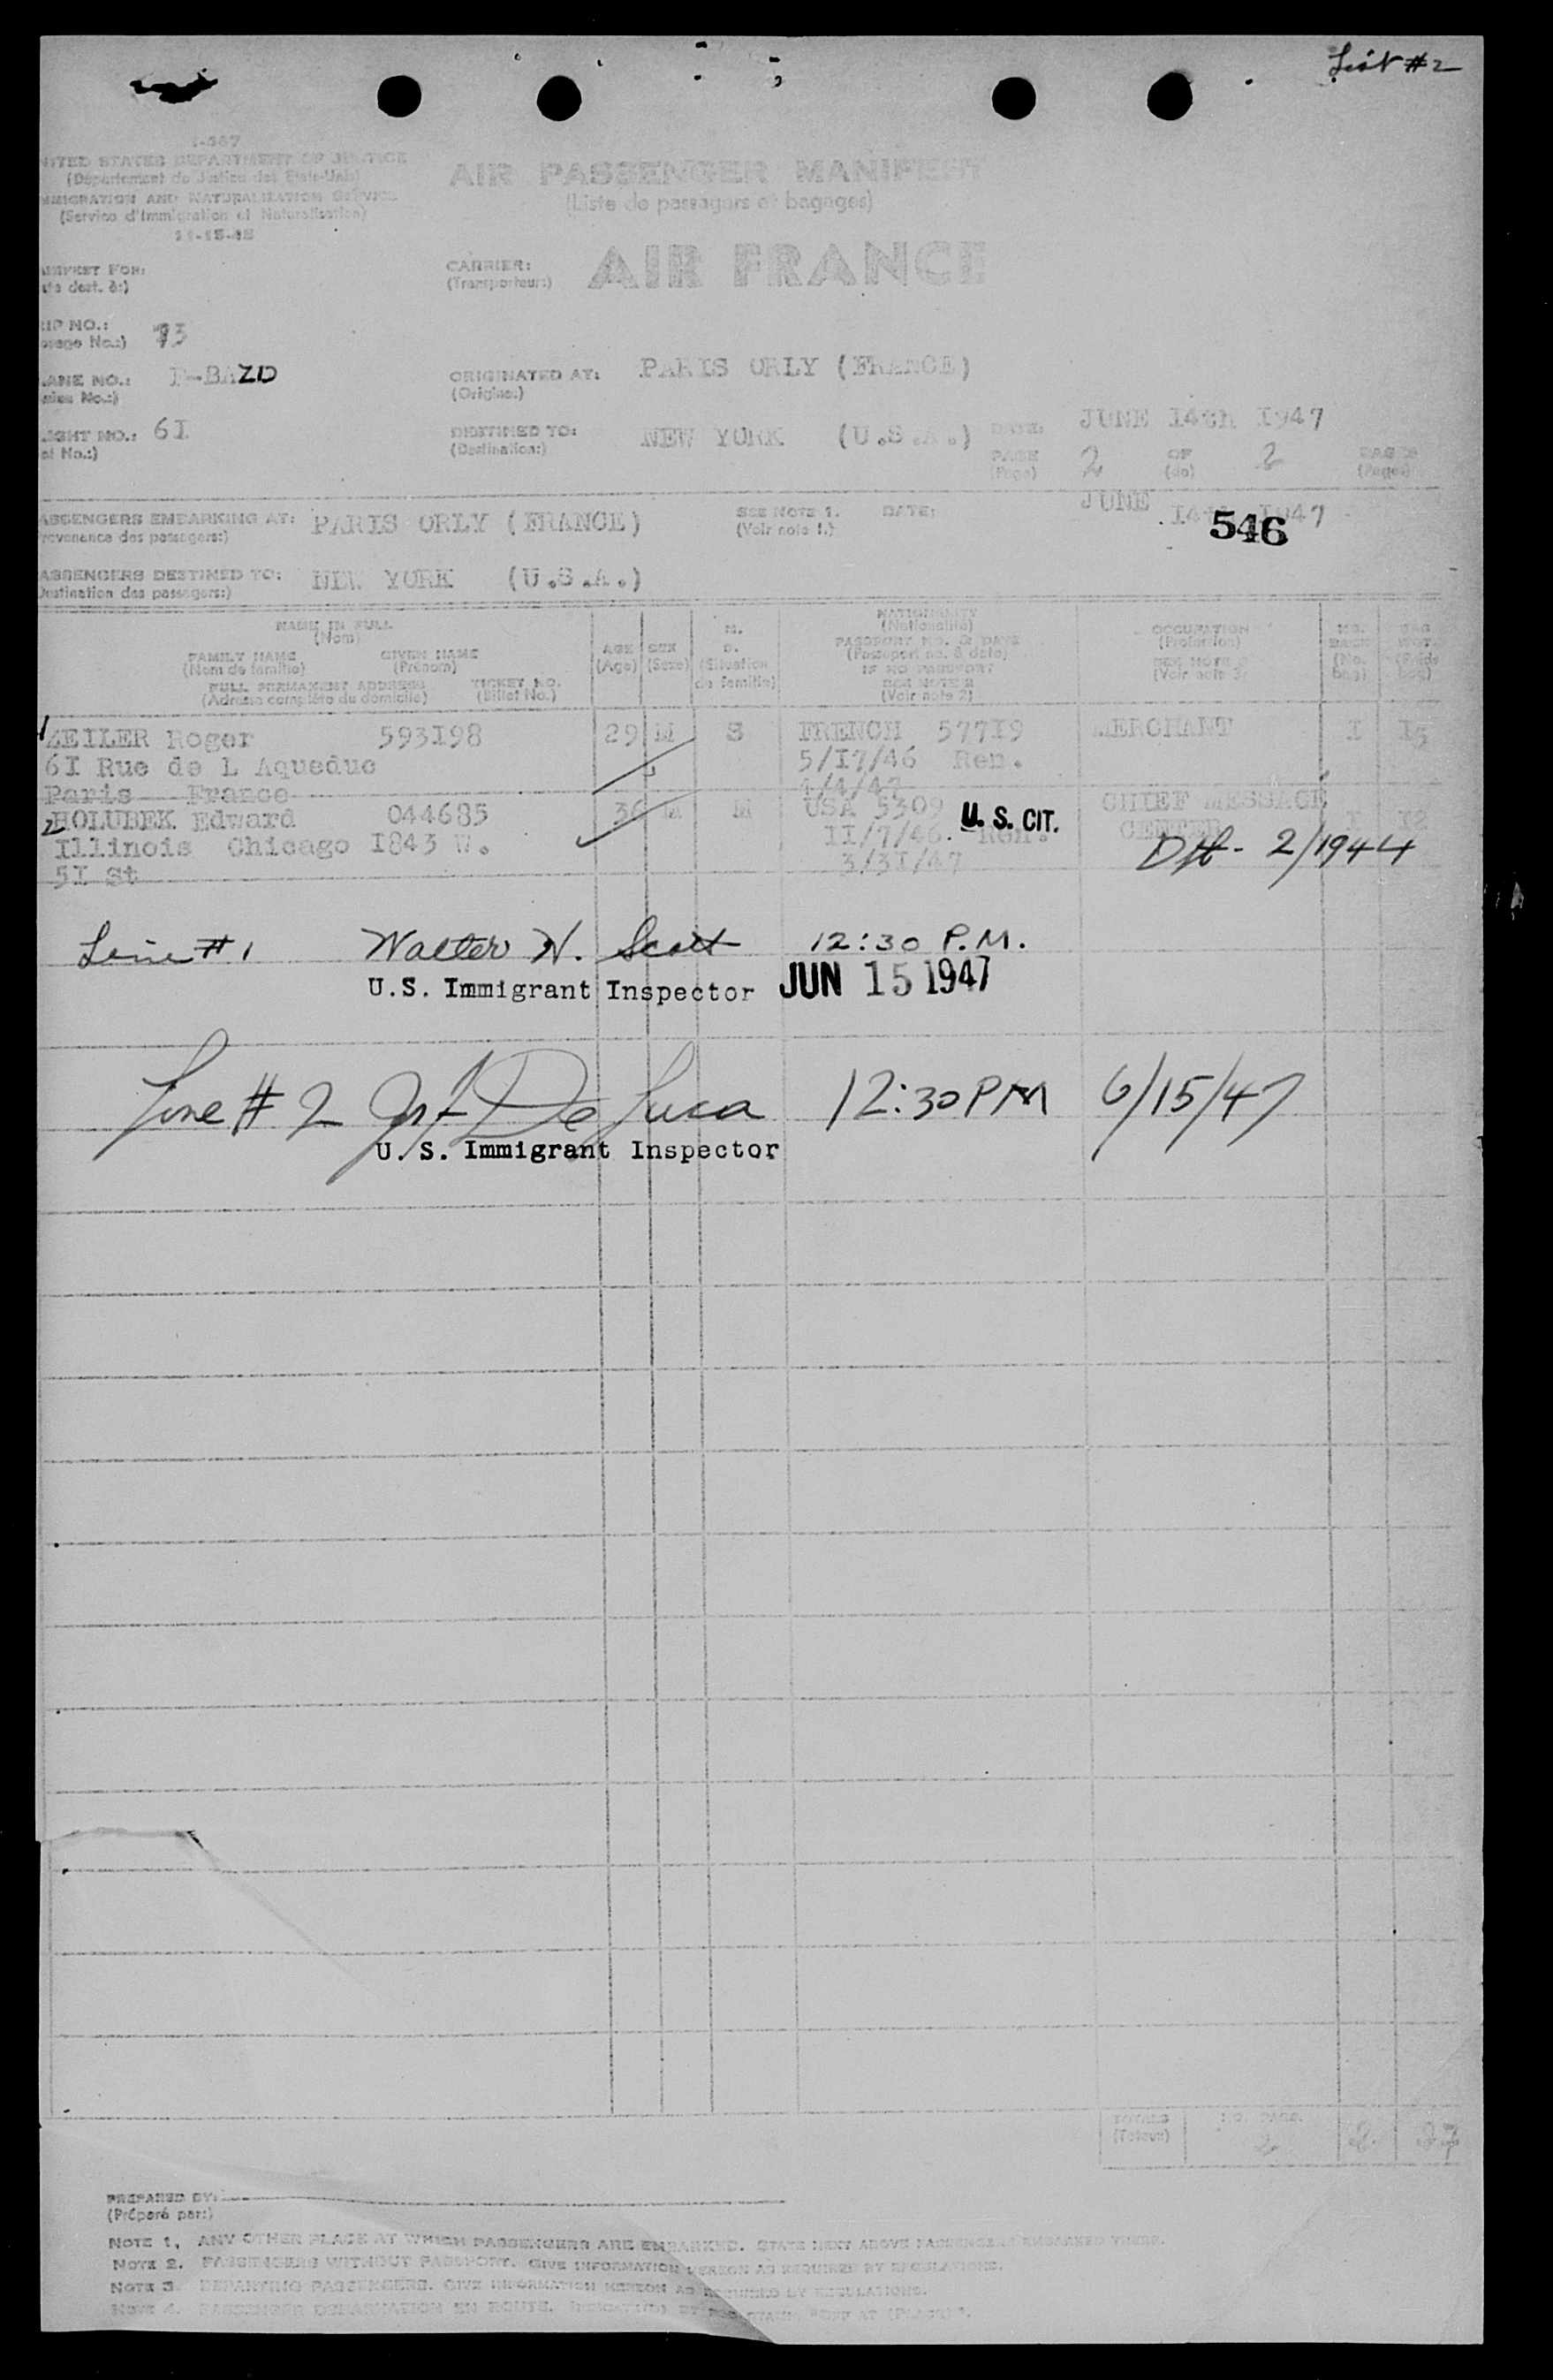 List #2
I-567
NITED STATES DEPARTMENT OF JUSTICE
(Département de Justice des Etats-Unis)
MMIGRATION AND NATURALIZATION SERVICE
(Service d'Immigration et Naturalisation)
11-15-45
AIR PASSENGER MANIFEST
(Liste de passagers et bagages)
CARRIER:
(Transporteur:)
AIR FRANCE
ANIFEST FOR:
dest. à:)
RIP NO.: 73
No.:)
LANE NO.: F-BAZD
No.:)
ORIGINATED AT: PARIS ORLY (FRANCE)
(Origine:)
LIGHT NO.: 61
No.:)
DESTINED TO: NEW YORK (U.S.A.)
(Destination:)
DATE: JUNE 14th 1947
PAGE 2 OF 2 PAGES
(Page) (de) (Pages)
ASSENGERS EMBARKING AT: PARIS ORLY (FRANCE)
rovenance des passagers:)
SEE NOTE 1. DATE: JUNE 14th 1947
(Voir note 1.)
546
ASSENGERS DESTINED TO: NEW YORK (U.S.A.)
Destination des passagers:)
NAME IN FULL
(Nom)
FAMILY NAME GIVEN NAME
(Nom de famille) (Prénom)
FULL PERMANENT ADDRESS TICKET NO.
(Adresse complète du domicile) (Billet No.)
AGE
(Age)
SEX
(Sexe)
M.
D.
(Situation
de famille)
NATIONALITY
(Nationalité)
PASSPORT NO. & DATE
(Passeport no. & date)
IF NO PASSPORT
SEE NOTE 2
(Voir note 2)
OCCUPATION
(Profession)
SEE NOTE 3
(Voir note 3)
NO.
BAGS
(No.
bag)
BAG
WGT.
(Poids
bag)
1 ZEILER Roger 593198 29 M S FRENCH 57719 MERCHANT 1 15
61 Rue de L Aqueduc 5/17/46 Ren.
Paris France 4/4/47
2 HOLUBEK Edward 044685 36 M M USA 5309 U. S. CIT. CHIEF MESSAGE 1 12
Illinois Chicago 1843 W. 11/7/46. Ren. CENTER
51 St 3/31/47
2/1944
Line #1 Walter N. Scott 12:30 P.M.
U.S. Immigrant Inspector JUN 15 1947
Line # 2 De Luca 12:30 PM 6/15/47
U.S. Immigrant Inspector
TOTALS NO. PASS.
(Totaux) 2 2 27
PREPARED BY:
(Préparé par:)
NOTE 1. ANY OTHER PLACE AT WHICH PASSENGERS ARE EMBARKED. STATE NEXT ABOVE PASSENGERS EMBARKED THERE.
NOTE 2. PASSENGERS WITHOUT PASSPORT. GIVE INFORMATION HEREON AS REQUIRED BY REGULATIONS.
NOTE 3. DEPARTING PASSENGERS. GIVE INFORMATION HEREON AS REQUIRED BY REGULATIONS.
NOTE 4. PASSENGER DESTINATION EN ROUTE. "OFF AT (PLACE)".